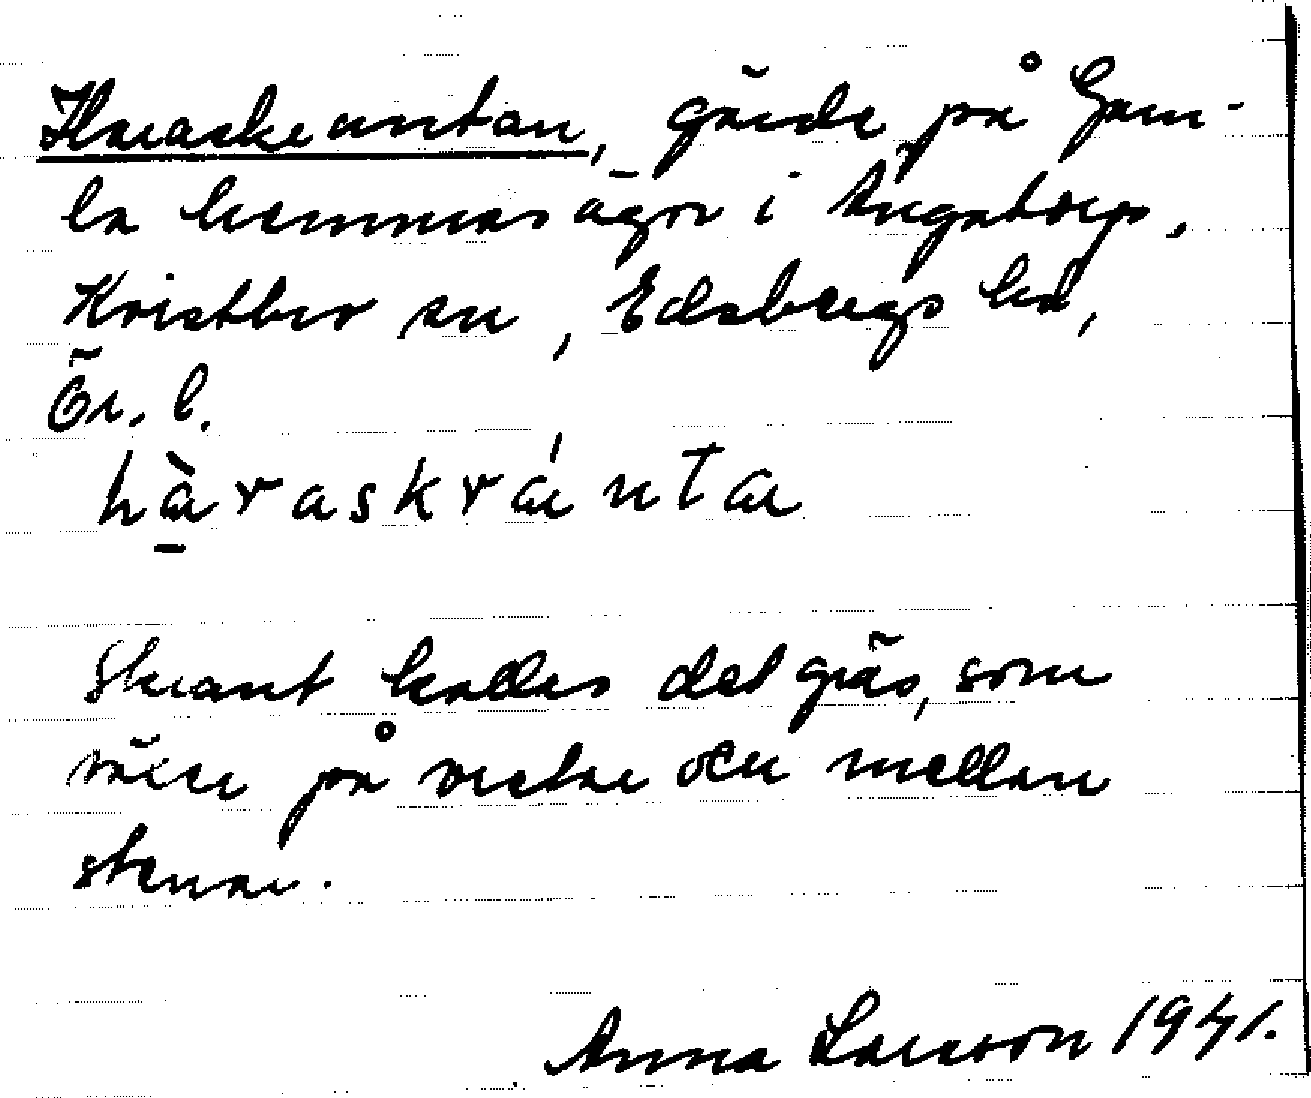 Haraskrantan, gärde på Gam-
la hemmas ägor i Ängatorp,
Kvistbro sn, Edsbergs hd,
Ör. l.
hàraskránta
Skrant kallas det gräs, som
växer på vretar och mellan
stenar.
Anna Larsson 1941.